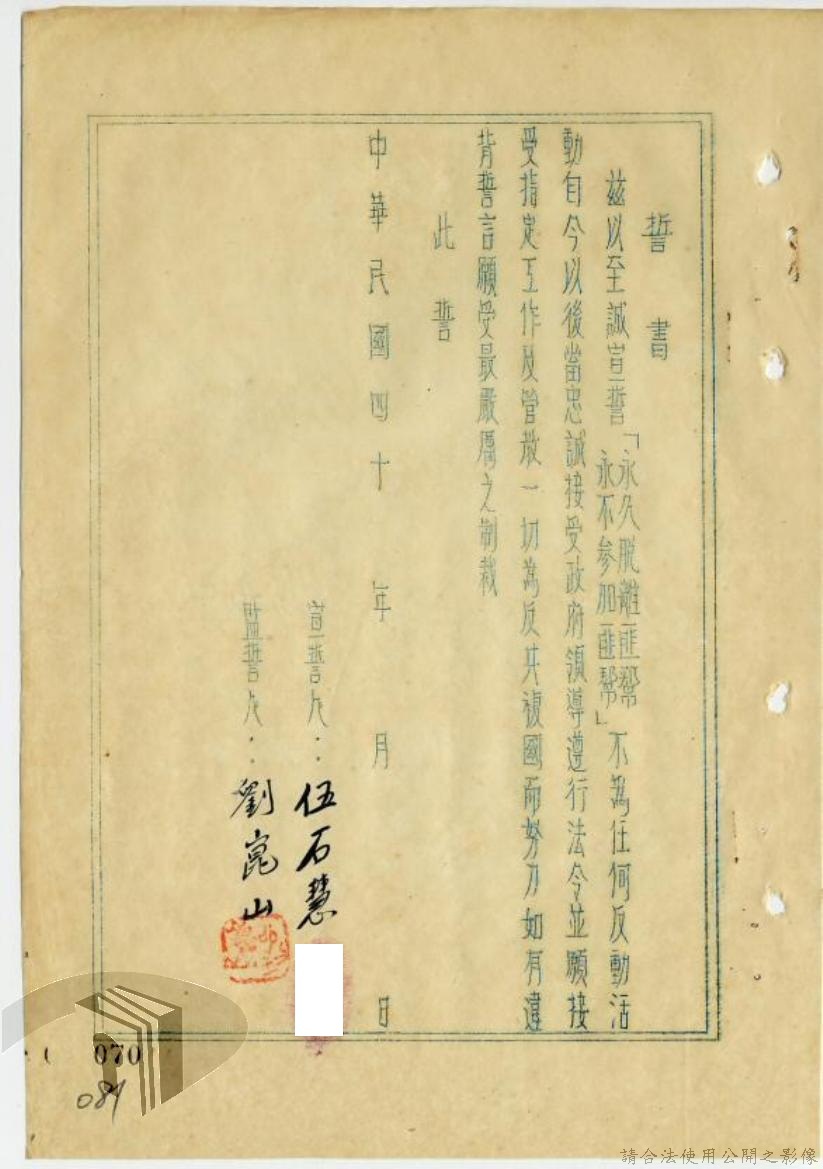 誓書
茲以至誠宣誓「永久脫離匪幫永不參加匪幫」不為任何反動活
動自今以後當忠誠接受政府領導遵行法令並願接
受指定工作及管教一切為反共複國而努力如有違
背誓言願受最嚴厲之制裁
此誓
中華民國四十 年 月 日
宣誓人：伍石慧
監誓人：劉崑山
070
請合法使用公開之影像